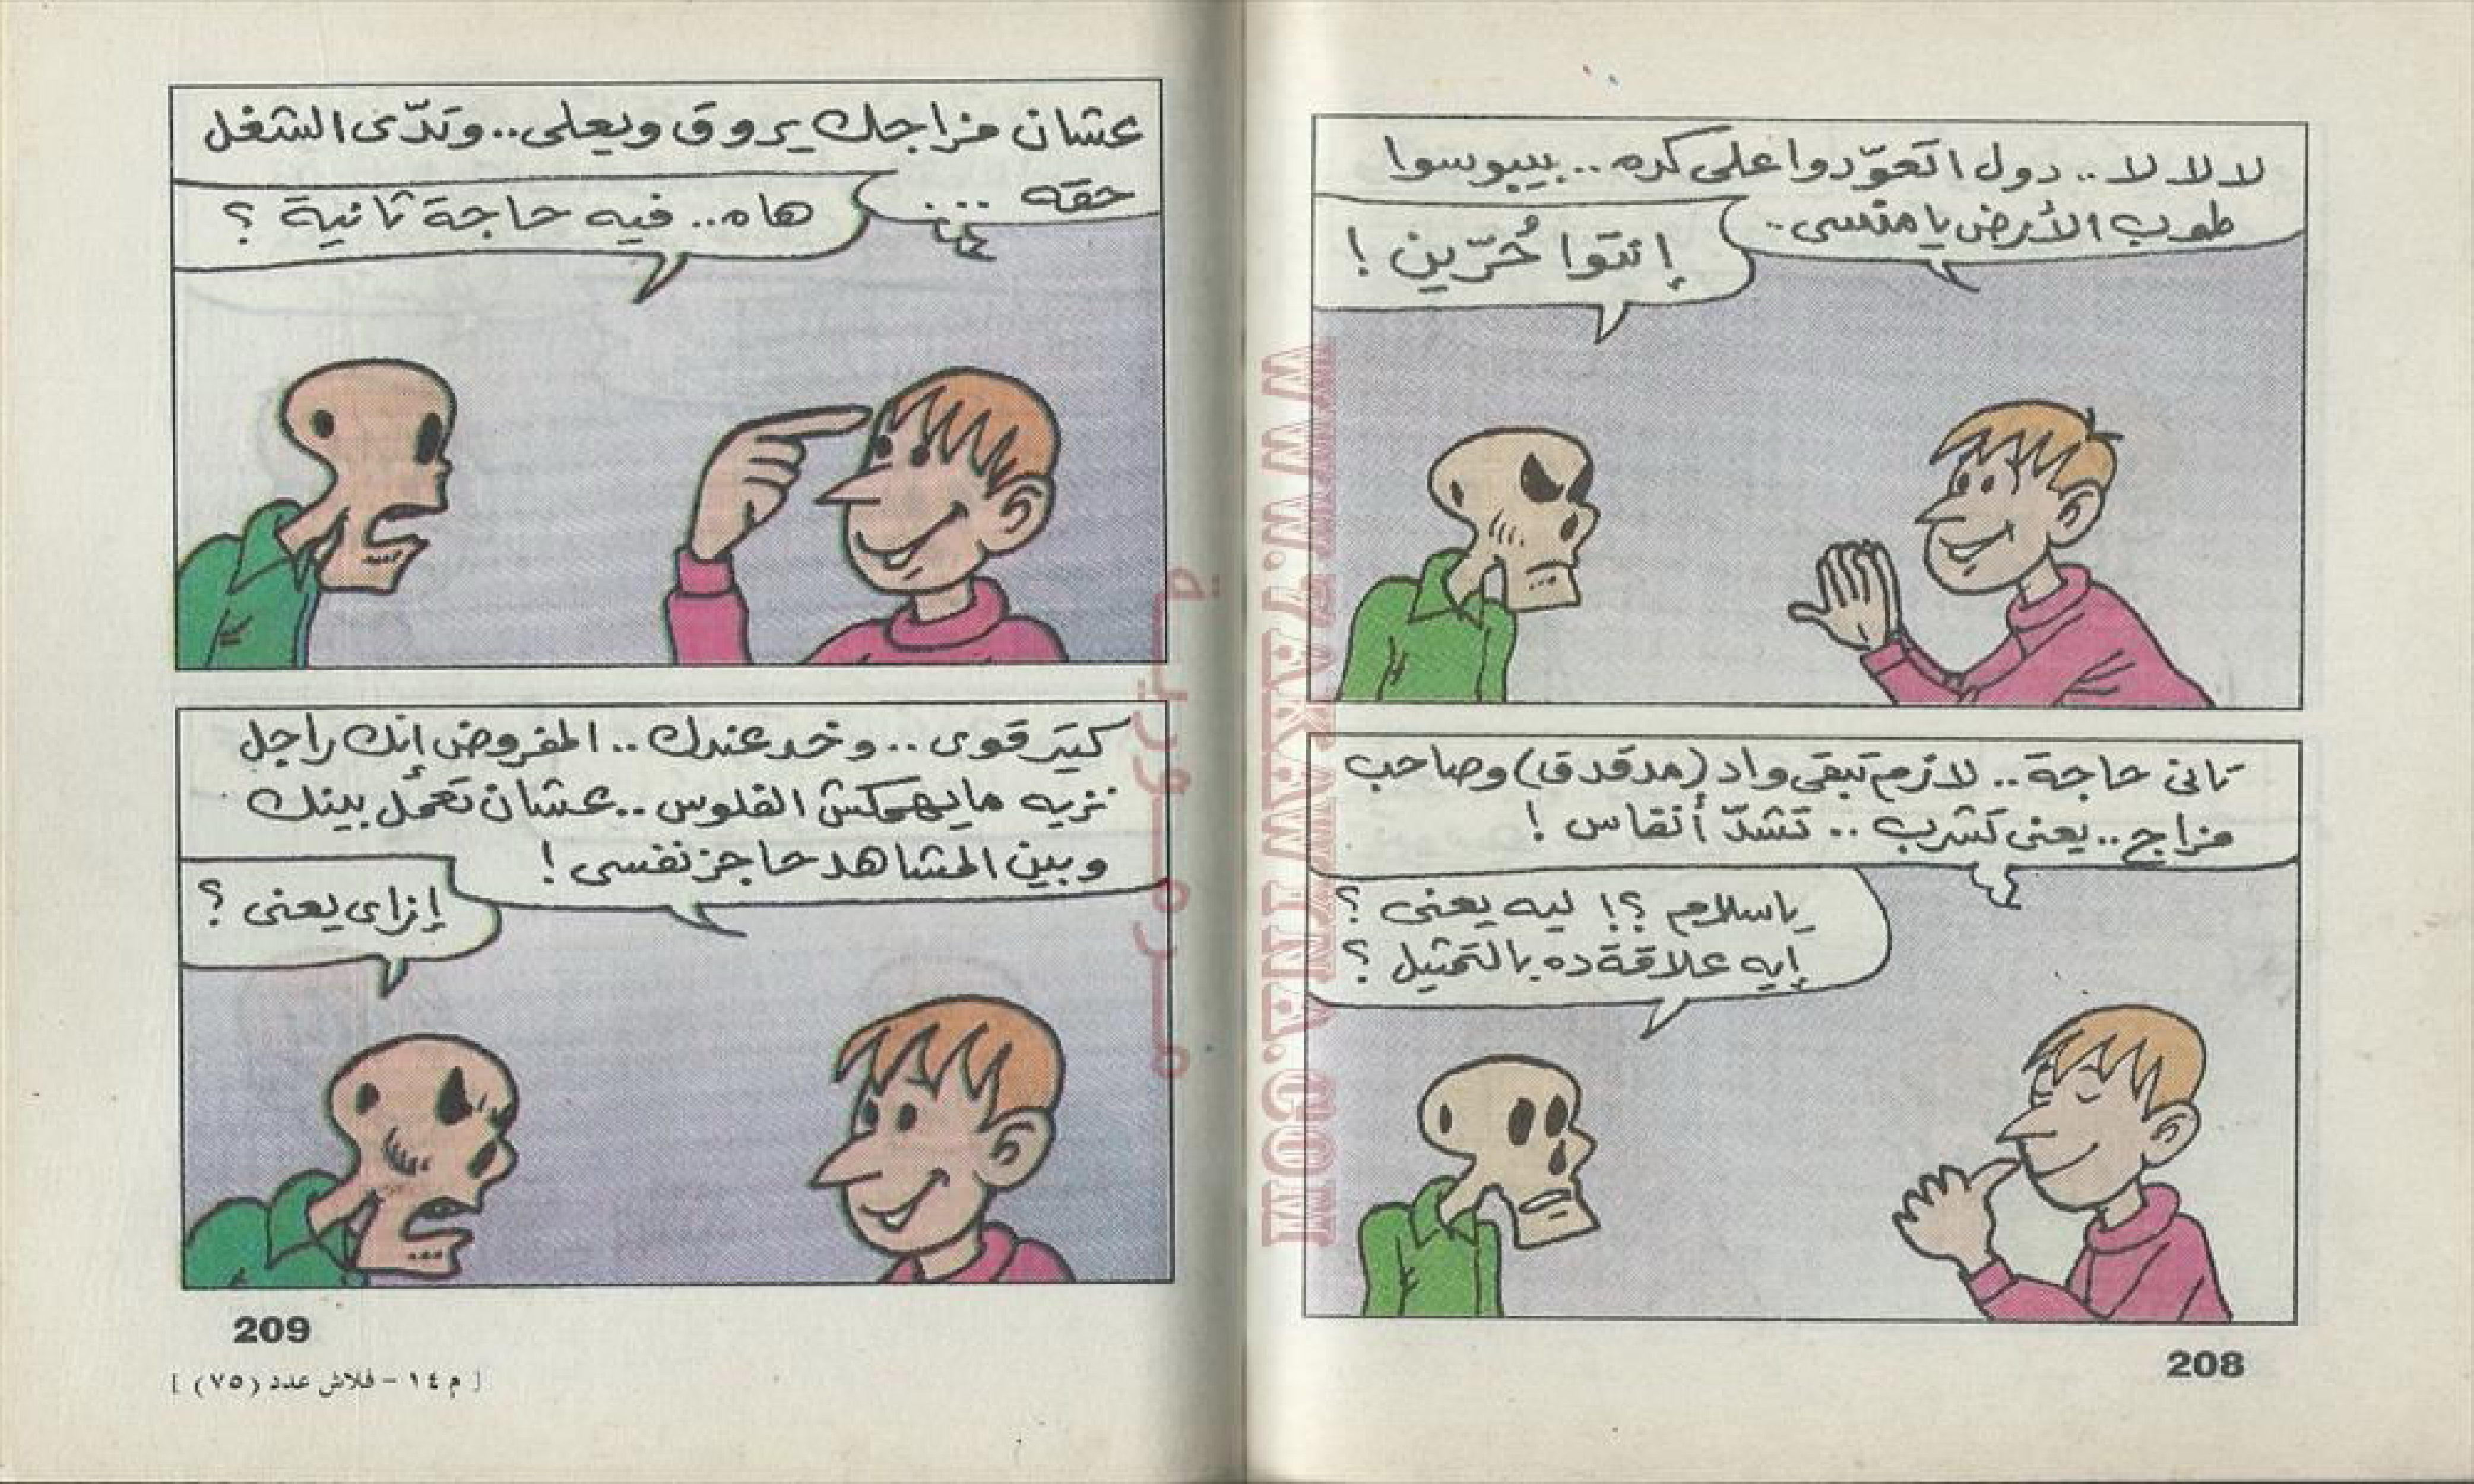 لا لا لا .. دول اتعوّدوا على كده .. بيبوسوا
طوب الأرض يا منسى ..
إنتوا حُرّين !
تانى حاجة .. لازم تبقى واد (مدقدق) وصاحب
مزاج .. يعنى تشرب .. تشدّ أنفاس !
ياسلام ؟! ليه يعنى ؟
إيه علاقة ده بالتمثيل ؟
208
عشان مزاجك يروق ويعلى .. وتدّى الشغل
حقه ....
هاه .. فيه حاجة تانية ؟
كتير قوى .. وخد عندك .. المفروض إنك راجل
نزيه مايهمكش الفلوس .. عشان تعمل بينك
وبين المشاهد حاجز نفسى !
إزاى يعنى ؟
209
[ م ١٤ - فلاش عدد (٧٥) ]